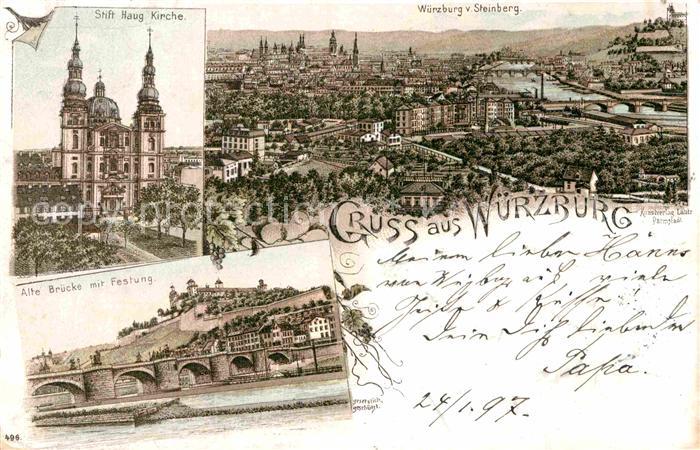 Stift Haug Kirche.
Würzburg v. Steinberg.
GRUSS AUS WÜRZBURG
Kunstverlag Lautz
Darmstadt.
Alte Brücke mit Festung.
Meinem lieben Hänns
von Würzburg aus viele
Grüße & Küsse
Dein Dich liebender
Papa.
24/1.97.
gesetzlich
geschützt.
496.
copyright protected